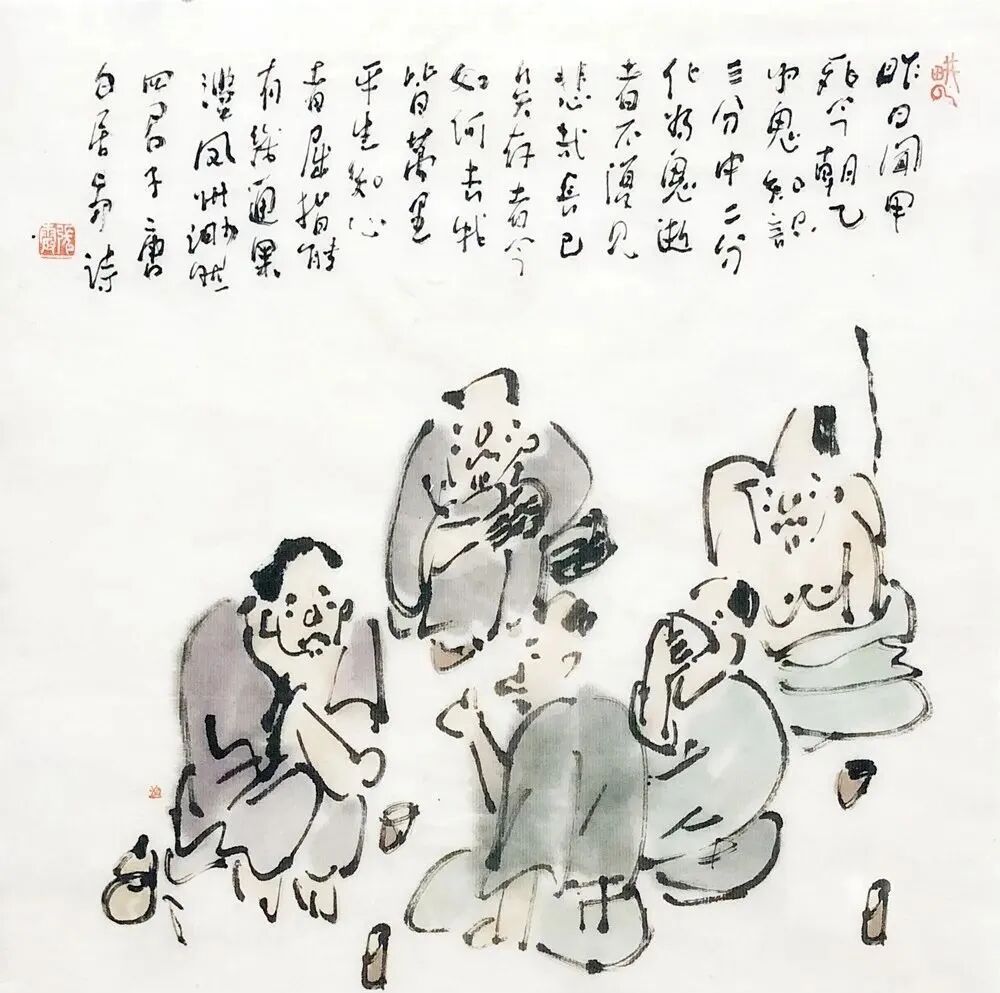 昨日闻甲
死今朝乙
为鬼知識
三分中二分
化为鬼逝
者不復见
悲哉长已
矣存者今
如何去我
皆萬里
平生知心
者屈指能
有幾通果
澧凤州渺然
四君子唐
白居易诗